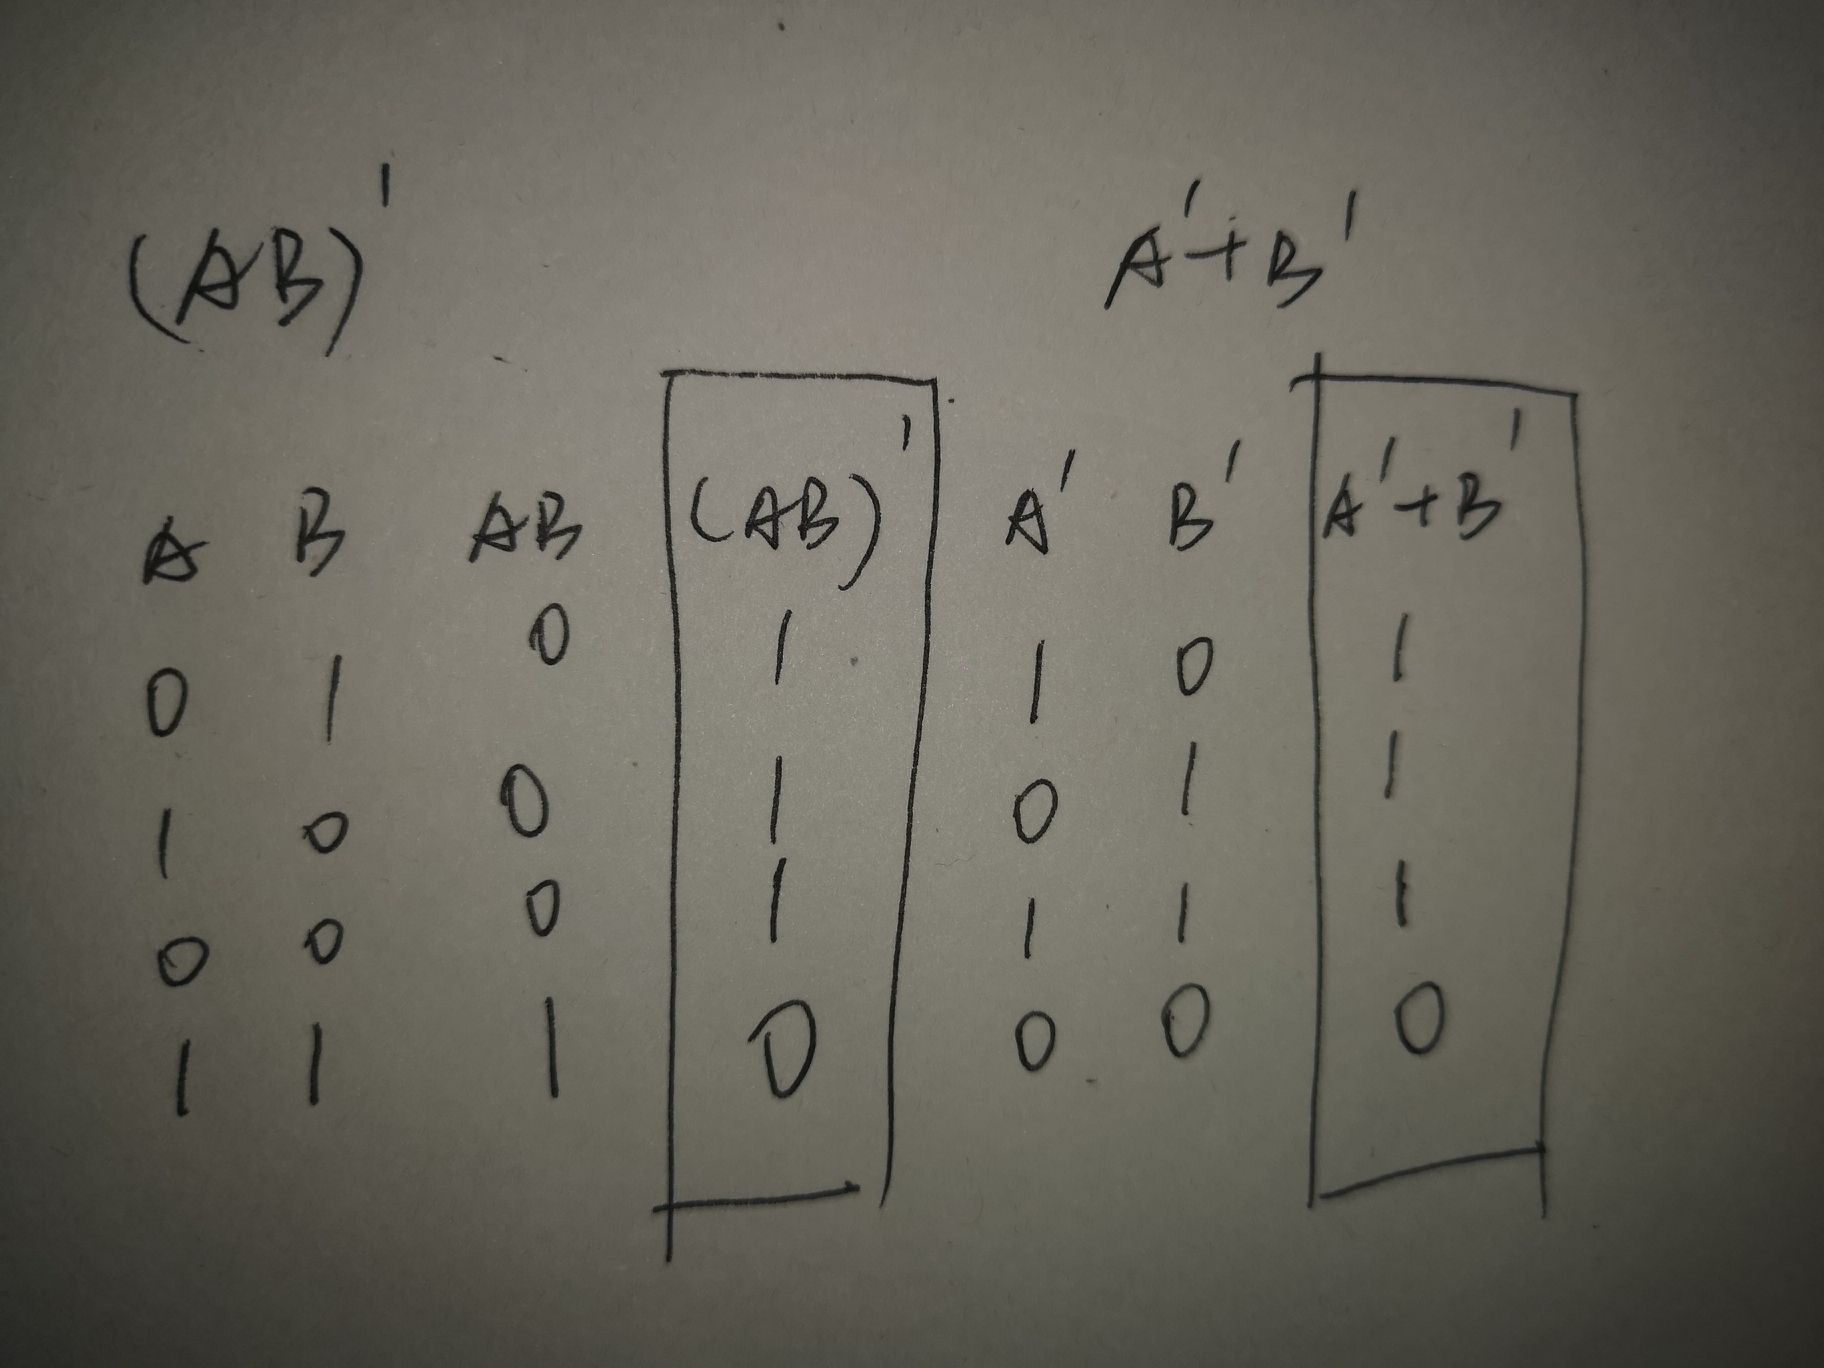 (AB)' A'+B'
A B AB (AB)' A' B' A'+B'
0 1 0 1 1 0 1
1 0 0 1 0 1 1
0 0 0 1 1 1 1
1 1 1 0 0 0 0